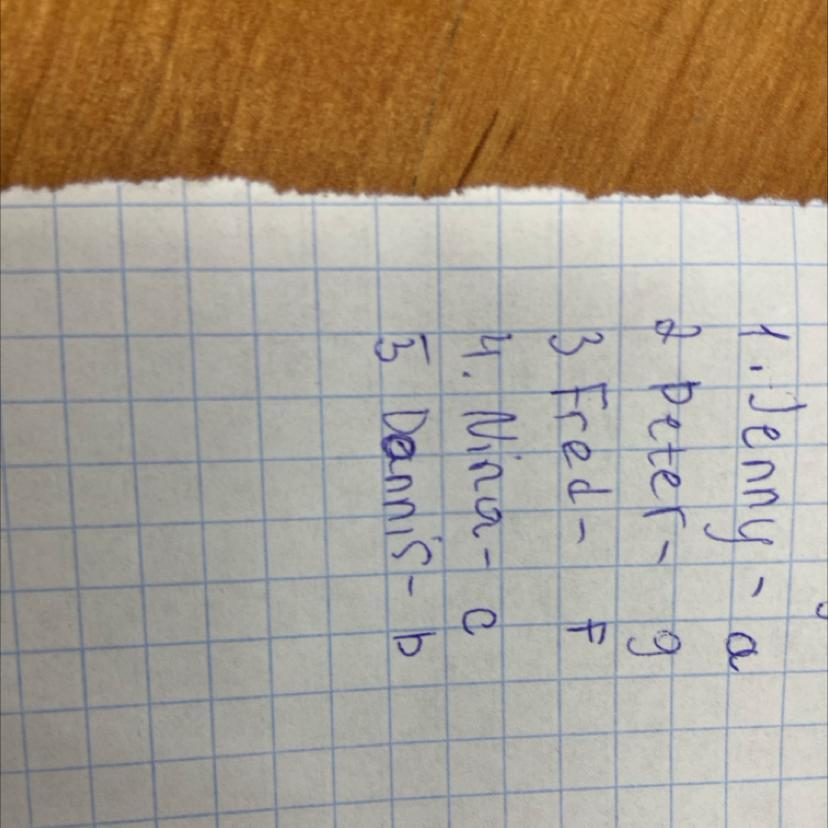 1. Jenny - a
2 Peter - g
3 Fred - F
4. Nina - c
5 Dannis - b